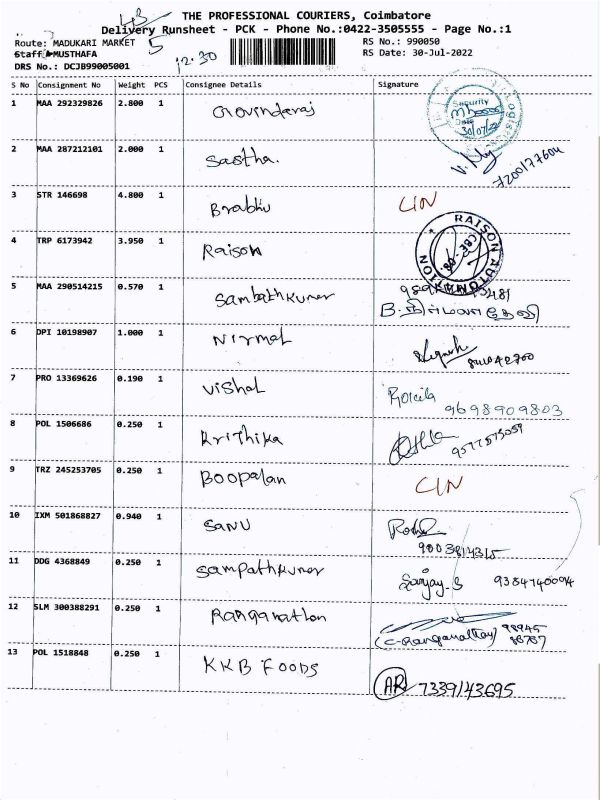 43
THE PROFESSIONAL COURIERS, Coimbatore
Delivery Runsheet - PCK - Phone No.:0422-3505555 - Page No.:1
Route: MADUKARI MARKET 5
RS No.: 990050
Staff: MUSTHAFA 12.30
RS Date: 30-Jul-2022
DRS No.: DCJB99005001
S No Consignment No Weight PCS Consignee Details Signature
1 MAA 292329826 2.800 1 Govinderaj
Security
Date 30/07/22
2 MAA 287212101 2.000 1 Sastha.
7200177604
3 STR 146698 4.800 1 Brabhu CIN
4 TRP 6173942 3.950 1 Raison
RAISON AUTOMATION
CBE - 08.
5 MAA 290514215 0.570 1 Sambathkumer
B.நிர்மலாதேவி
6 DPI 10198907 1.000 1 Nirmal
7 PRO 13369626 0.190 1 Vishal
9698909803
8 POL 1506686 0.250 1 Krithika
9577575059
9 TRZ 245253705 0.250 1 Boopalan CIN
10 IXM 501868827 0.940 1 SANU
9003814315
11 DDG 4368849 0.250 1 Sampathkumer Sanjay.S 9384740094
12 SLM 300388291 0.250 1 Ranganathan
98945
(C-Ranganathan) 88787
13 POL 1518848 0.250 1 KKB FOODS
AR 7339143695